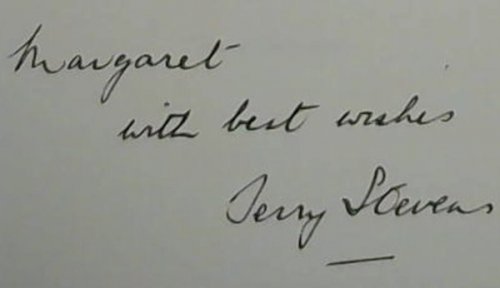 Margaret
with best wishes
Jerry Stevens